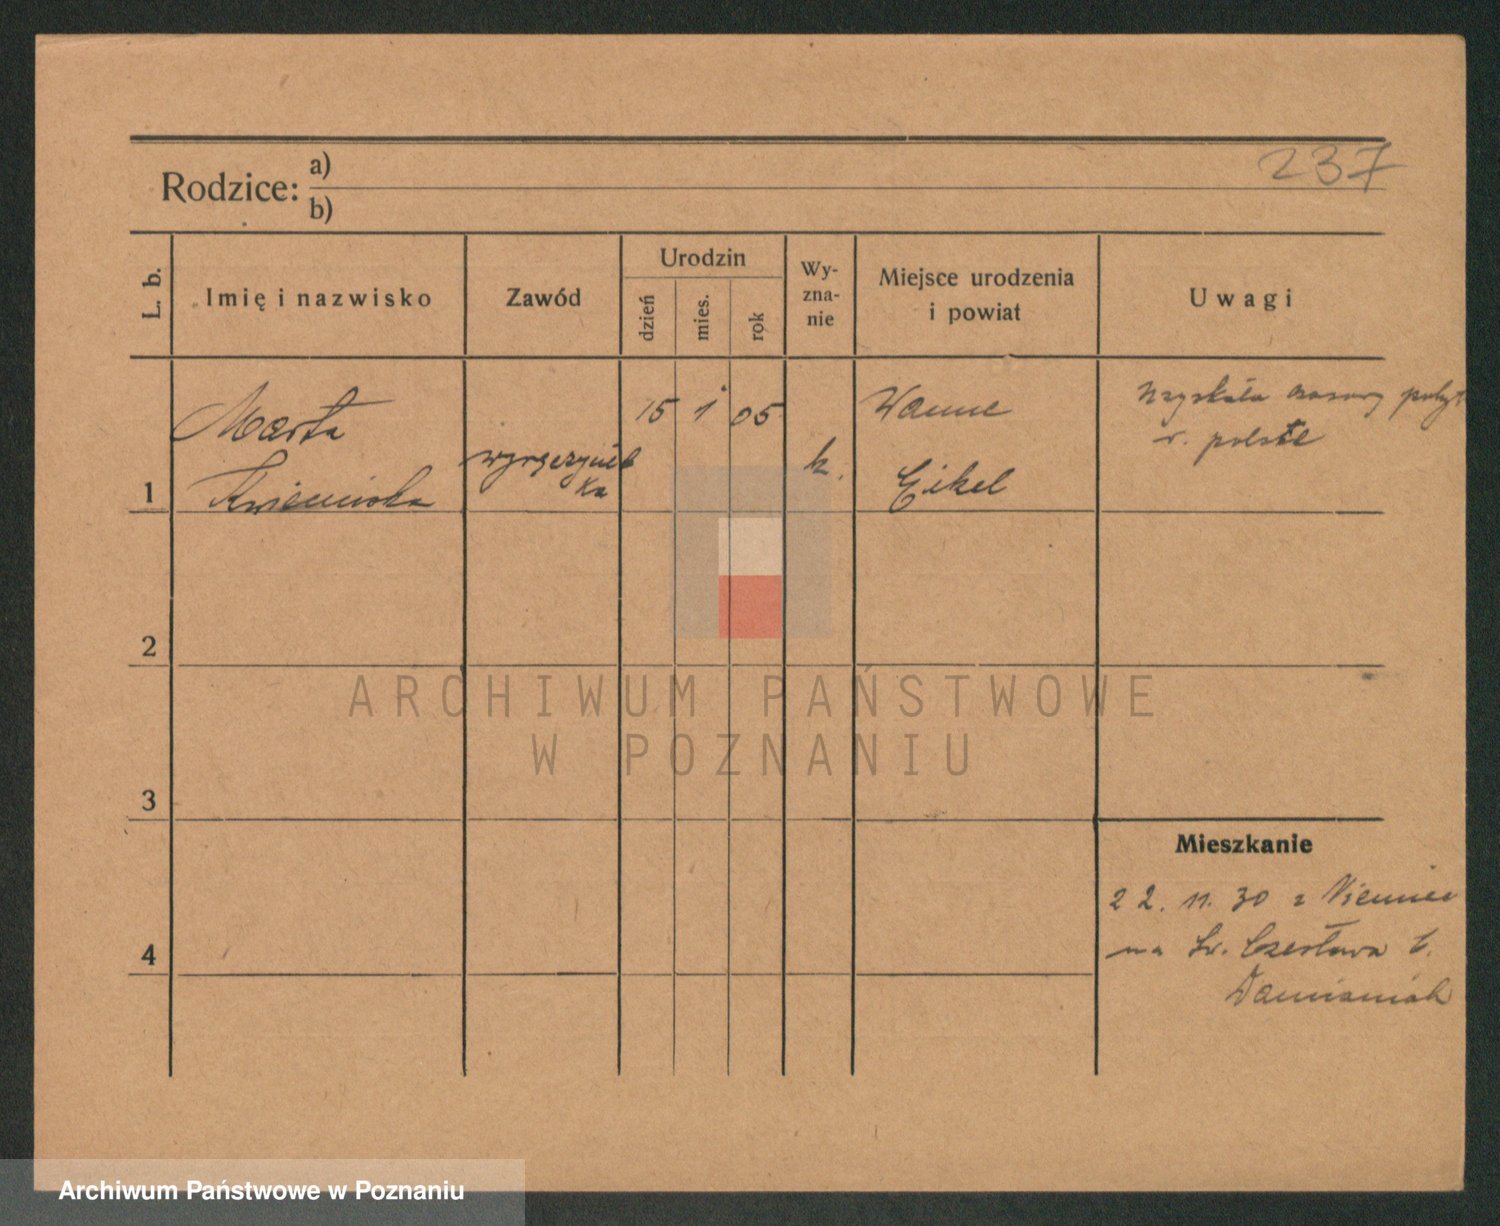 237
Rodzice: a)
b)
L. b.
Imię i nazwisko
Zawód
Urodzin
dzień
mies.
rok
Wy-
zna-
nie
Miejsce urodzenia
i powiat
Uwagi
Marta
15 1 05
Wanne
Uzyskała czasowy pobyt
w. polsce
1
k.
Eikel
2
ARCHIWUM PAŃSTWOWE
W POZNANIU
3
Mieszkanie
22. 11. 30 z Niemiec
na Św. Czesława 6.
4
Damianiak
Archiwum Państwowe w Poznaniu